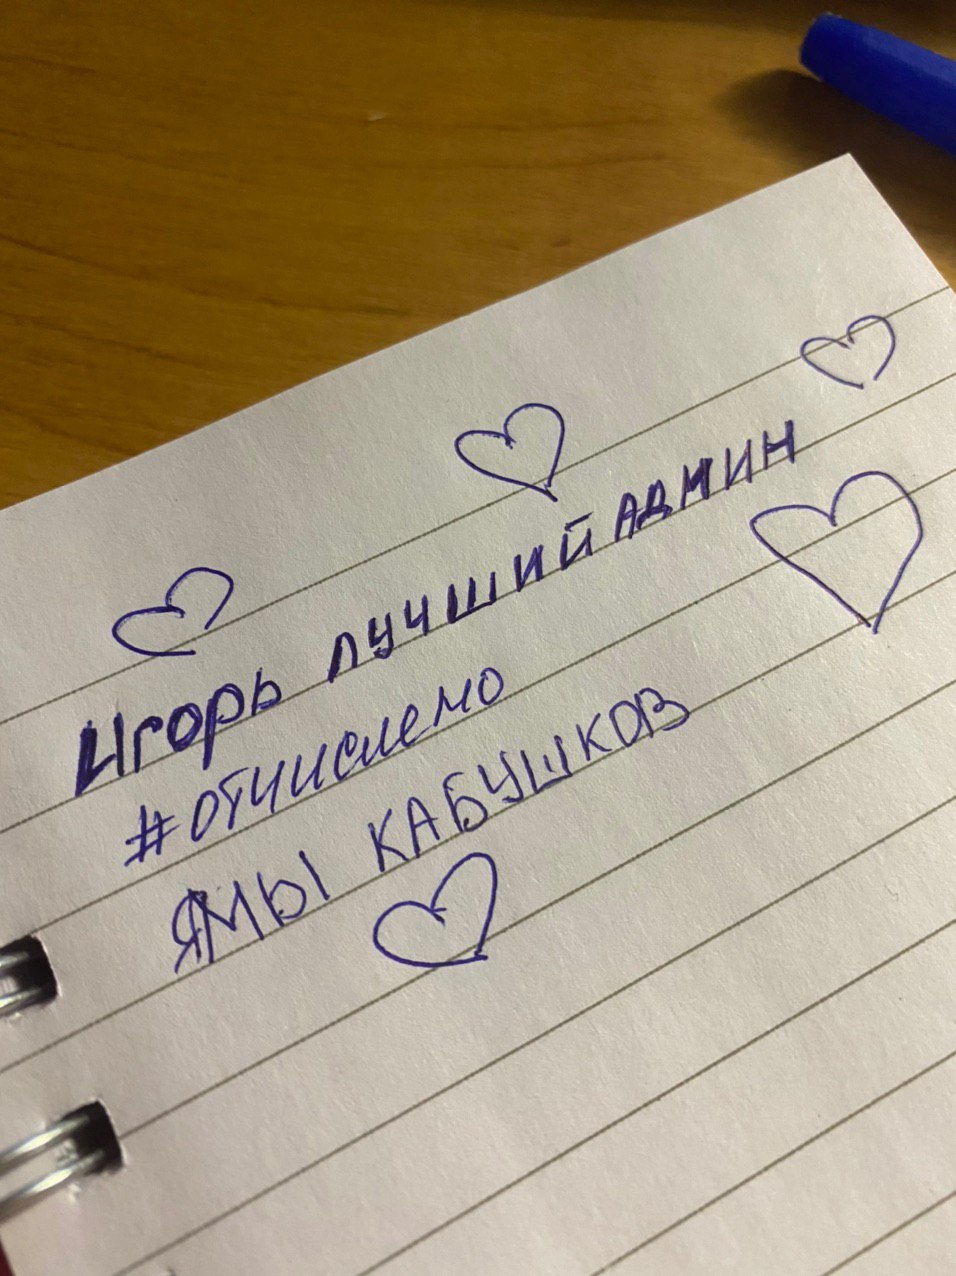 Игорь лучший админ
#отчислемо
ЯМЫ КАБУШКОВ